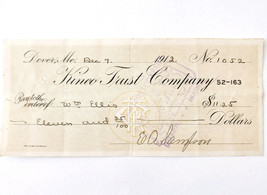 Dover, Me. Dec 7, 1912 No. 1052
Kineo Trust Company 52-163
Pay to the order of Wm Ellis $11.25
Eleven and 25/100 Dollars
E A Sampson